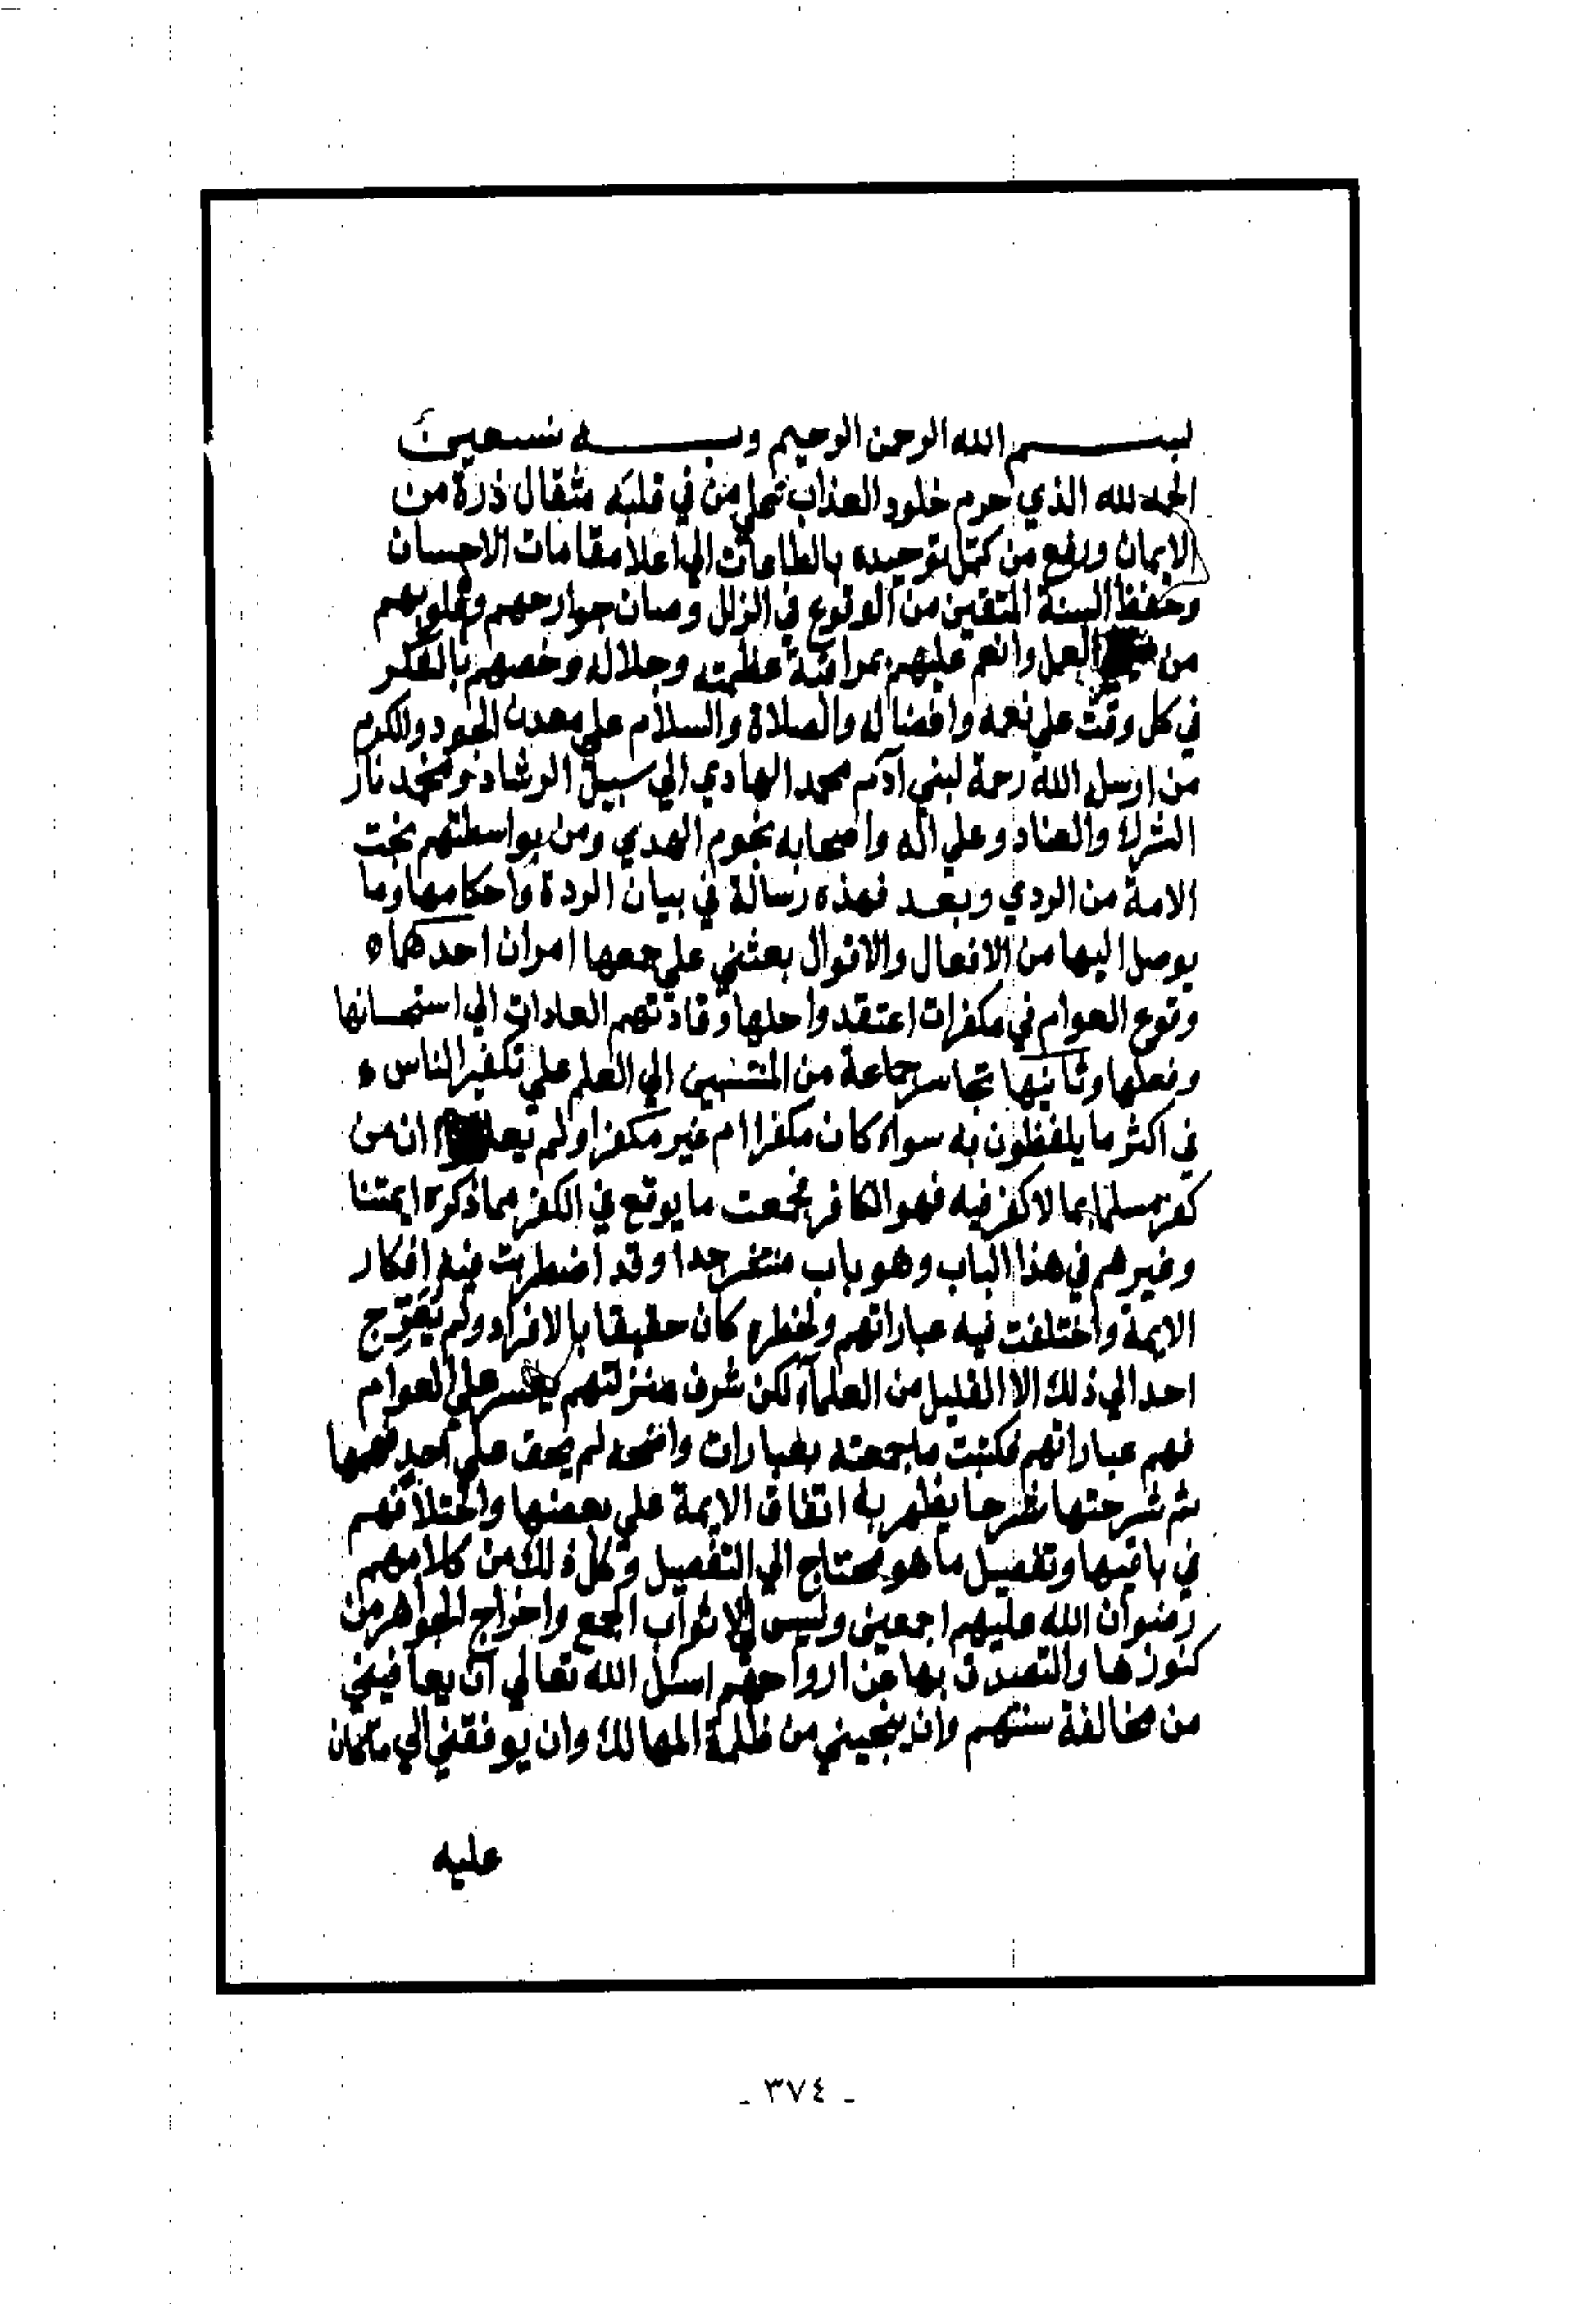 بسم الله الرحمن الرحيم وبه نستعين
الحمد لله الذي حرم خلود العذاب على من في قلبه مثقال ذرة من
الايمان ورفع من كمل توحيده بالطاعات الي اعلا مقامات الاحسان
وحفظ السنة المتقين من الوقوع في الزلل وصان جوارحهم وقلوبهم
من العمل وانعم عليهم بمراقبة عظمته وجلاله وخصهم بالفكر
في كل وقت علي نعمه وافضاله والصلاة والسلام علي معدن الجود والكرم
من ارسل الله رحمة لبني آدم محمد الهادي الي سبيل الرشاد ومخمد نار
الشرك والعناد وعلي آله واصحابه نجوم الهدي ومن بواسطتهم نجت
الامة من الردي وبعد فهذه رسالة في بيان الردة واحكامها وما
يوصل اليها من الافعال والاقوال بعثني علي جمعها امران احدهما
وقوع العوام في مكفرات اعتقدوا حلها وقادتهم العادات الي استحسانها
وفعلها وثانيها تجاسر جماعة من المنتسبين الي العلم علي تكفير الناس
في اكثر ما يلفظون به سواء كان مكفرا ام غير مكفر اولم ان من
كفر مسلما بما لا كفر فيه فهو الكافر فجمعت ما يوقع في الكفر مما ذكره ايمتنا
وغيرهم في هذا الباب وهو باب منتشر جدا وقد اضطربت فيه افكار
الايمة واختلفت فيه عباراتهم ولخطره كان حقيقا بالافراد ولم
احد الي ذلك الا القليل من العلماء لكن شرف منزلتهم يعسر علي العوام
فهم عباراتهم فكتبت ما جمعته بعبارات واضحه لم يخف علي احد فهمها
ثم شرحتها شرحا يظهر به اتفاق الايمة علي بعضها واختلافهم
في باقيها وتفصيل ما هو محتاج الي التفصيل وكل ذلك من كلامهم
رضوان الله عليهم اجمعين وليس لي الا ثواب الجمع واخراج الجواهر من
كنوزها والتصدق بها عن ارواحهم اسئل الله تعالي ان يعافيني
من مخالفة سنتهم وان ينجيني من ظلمة المهالك وان يوفقني الي ما كان
عليه
- ٣٧٤ -